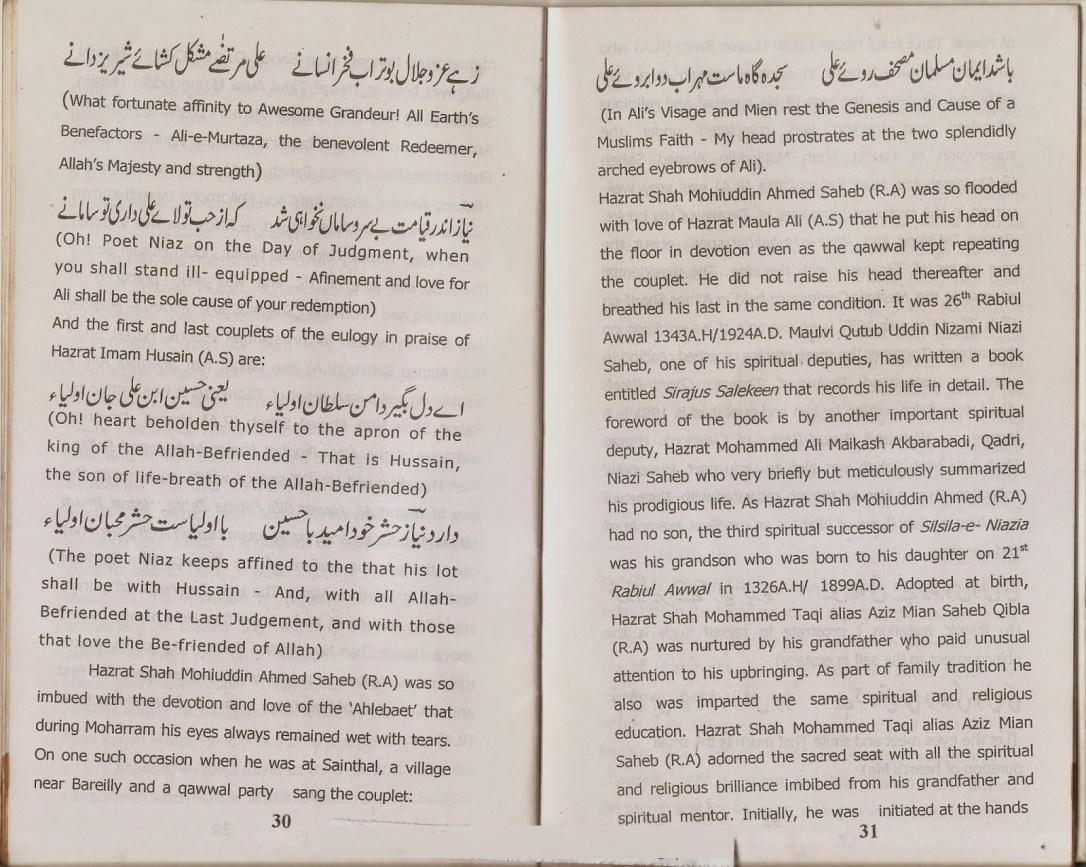 زہے عز و جلال بو تراب فخر انسانے علی مرتضےٰ مشکل کشائے شیر یزدانے
(What fortunate affinity to Awesome Grandeur! All Earth's
Benefactors - Ali-e-Murtaza, the benevolent Redeemer,
Allah's Majesty and strength)
نیاز اندر قیامت بے سر و ساماں نخواہی شد کہ از حب تولائے علی داری تو سامانے
(Oh! Poet Niaz on the Day of Judgment, when
you shall stand ill- equipped - Afinement and love for
Ali shall be the sole cause of your redemption)
And the first and last couplets of the eulogy in praise of
Hazrat Imam Husain (A.S) are:
اے دل بگیر دامن سلطان اولیاء یعنی حسین ابن علی جان اولیاء
(Oh! heart beholden thyself to the apron of the
king of the Allah-Befriended - That is Hussain,
the son of life-breath of the Allah-Befriended)
دارد نیاز حشر خود امید با حسین با اولیاست حشر محبان اولیاء
(The poet Niaz keeps affined to the that his lot
shall be with Hussain - And, with all Allah-
Befriended at the Last Judgement, and with those
that love the Be-friended of Allah)
Hazrat Shah Mohiuddin Ahmed Saheb (R.A) was so
imbued with the devotion and love of the 'Ahlebaet' that
during Moharram his eyes always remained wet with tears.
On one such occasion when he was at Sainthal, a village
near Bareilly and a qawwal party sang the couplet:
30
باشد ایمان مسلمان مصحف روئے علی سجدہ گاہ ماست مہراب دو ابروئے علی
(In Ali's Visage and Mien rest the Genesis and Cause of a
Muslims Faith - My head prostrates at the two splendidly
arched eyebrows of Ali).
Hazrat Shah Mohiuddin Ahmed Saheb (R.A) was so flooded
with love of Hazrat Maula Ali (A.S) that he put his head on
the floor in devotion even as the qawwal kept repeating
the couplet. He did not raise his head thereafter and
breathed his last in the same condition. It was 26th Rabiul
Awwal 1343A.H/1924A.D. Maulvi Qutub Uddin Nizami Niazi
Saheb, one of his spiritual deputies, has written a book
entitled Sirajus Salekeen that records his life in detail. The
foreword of the book is by another important spiritual
deputy, Hazrat Mohammed Ali Maikash Akbarabadi, Qadri,
Niazi Saheb who very briefly but meticulously summarized
his prodigious life. As Hazrat Shah Mohiuddin Ahmed (R.A)
had no son, the third spiritual successor of Silsila-e- Niazia
was his grandson who was born to his daughter on 21st
Rabiul Awwal in 1326A.H/ 1899A.D. Adopted at birth,
Hazrat Shah Mohammed Taqi alias Aziz Mian Saheb Qibla
(R.A) was nurtured by his grandfather who paid unusual
attention to his upbringing. As part of family tradition he
also was imparted the same spiritual and religious
education. Hazrat Shah Mohammed Taqi alias Aziz Mian
Saheb (R.A) adorned the sacred seat with all the spiritual
and religious brilliance imbibed from his grandfather and
spiritual mentor. Initially, he was initiated at the hands
31